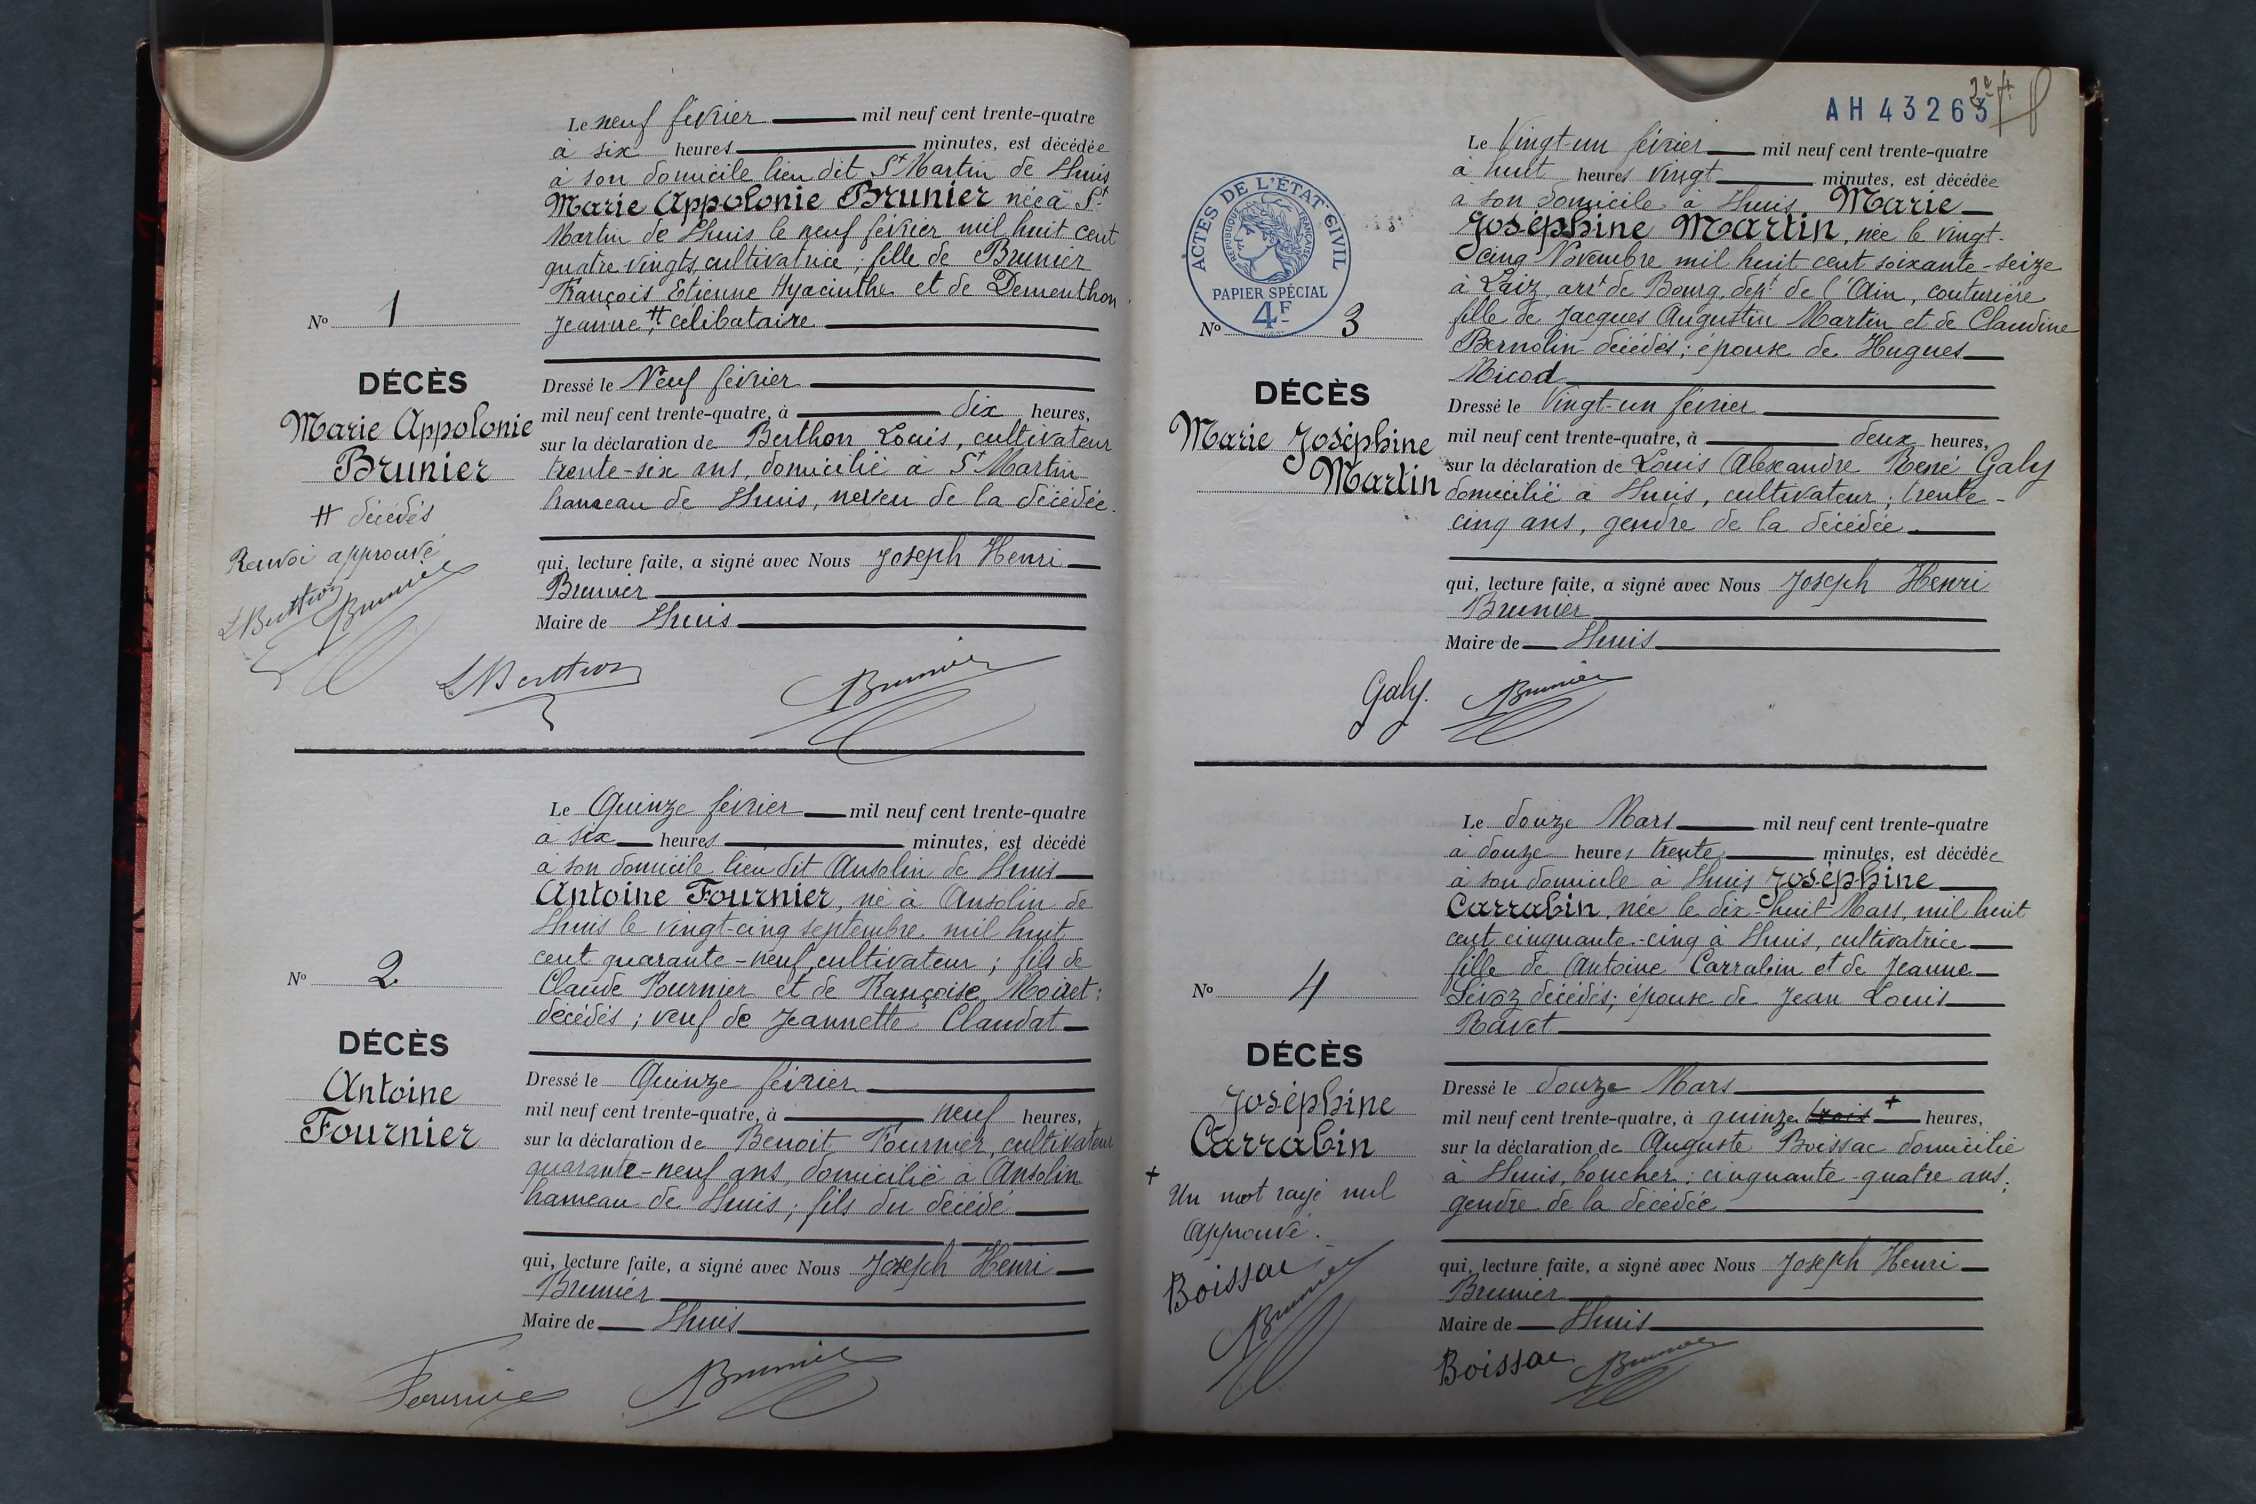 Le neuf février mil neuf cent trente-quatre
à six heures minutes, est décédée
à son domicile lieu dit St Martin de Lhuis
Marie Appolonie Brunier née à St
Martin de Lhuis le neuf février mil huit cent
quatre vingts, cultivatrice ; fille de Brunier
François Etienne Hyacinthe et de Dementhon
Jeanne # célibataire
No 1
DÉCÈS
Marie Appolonie
Brunier
# décédés
Renvoi approuvé
LBerthon Brunier
Dressé le Neuf février
mil neuf cent trente-quatre, à dix heures,
sur la déclaration de Berthon Louis, cultivateur
trente-six ans, domicilié à St Martin
hameau de Lhuis, neveu de la décédée.
qui, lecture faite, a signé avec Nous Joseph Henri
Brunier
Maire de Lhuis
LBerthon Brunier
Le Quinze février mil neuf cent trente-quatre
à six heures minutes, est décédé
à son domicile lieu dit Ansolin de Lhuis
Antoine Fournier, né à Ansolin de
Lhuis le vingt-cinq septembre mil huit
cent quarante-neuf, cultivateur ; fils de
Claude Fournier et de Françoise Moiret :
décédés ; veuf de Jeannette Claudat
No 2
DÉCÈS
Antoine
Fournier
Dressé le Quinze février
mil neuf cent trente-quatre, à neuf heures,
sur la déclaration de Benoit Fournier, cultivateur
quarante-neuf ans, domicilié à Ansolin
hameau de Lhuis ; fils du décédé
qui, lecture faite, a signé avec Nous Joseph Henri
Brunier
Maire de Lhuis
Fournier Brunier
AH 43263
ACTES DE L'ÉTAT CIVIL
REPUBLIQUE FRANÇAISE
PAPIER SPÉCIAL
4F
Le Vingt-un février mil neuf cent trente-quatre
à huit heures vingt minutes, est décédée
à son domicile à Lhuis Marie
Joséphine Martin, née le vingt-
cinq Novembre mil huit cent soixante-seize
à Laiz, arrt de Bourg, dept de l'Ain, couturière
fille de Jacques Augustin Martin et de Claudine
Bernolin décédés ; épouse de Hugues
Nicod
No 3
DÉCÈS
Marie Joséphine
Martin
Dressé le Vingt-un février
mil neuf cent trente-quatre, à deux heures,
sur la déclaration de Louis Alexandre René Galy
domicilié à Lhuis, cultivateur ; trente-
cinq ans, gendre de la décédée
qui, lecture faite, a signé avec Nous Joseph Henri
Brunier
Maire de Lhuis
Galy. Brunier
Le douze Mars mil neuf cent trente-quatre
à douze heures trente minutes, est décédée
à son domicile à Lhuis Joséphine
Carrabin, née le dix-huit Mars mil huit
cent cinquante-cinq à Lhuis, cultivatrice
fille de Antoine Carrabin et de Jeanne
décédés ; épouse de Jean Louis
Ravet
No 4
DÉCÈS
Joséphine
Carrabin
+ Un mot rayé nul
approuvé.
Boissac
Brunier
Dressé le douze Mars
mil neuf cent trente-quatre, à quinze trois + heures,
sur la déclaration de Auguste Boissac domicilié
à Lhuis, boucher ; cinquante-quatre ans ;
gendre de la décédée
qui, lecture faite, a signé avec Nous Joseph Henri
Brunier
Maire de Lhuis
Boissac Brunier